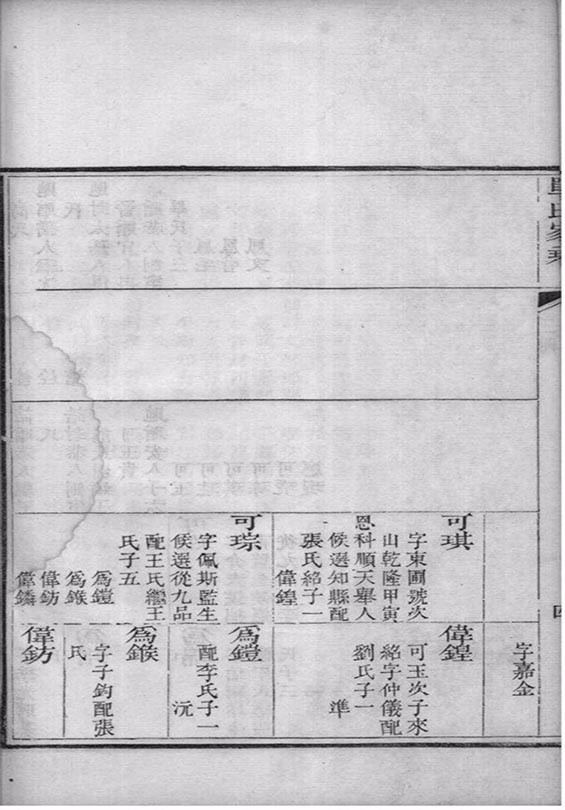 單氏家乘
四
字嘉金
可琪
字東圃號次
山乾隆甲寅
恩科順天舉人
候選知縣配
張氏紹子一
偉鍠
偉鍠
可玉次子來
紹字仲儀配
劉氏子一
準
可琮
字佩斯監生
候選從九品
配王氏繼王
氏子五
為鎧
為鍭
偉鈁
偉鏻
為鎧
配李氏子一
沅
為鍭
字子鈞配張
氏
偉鈁